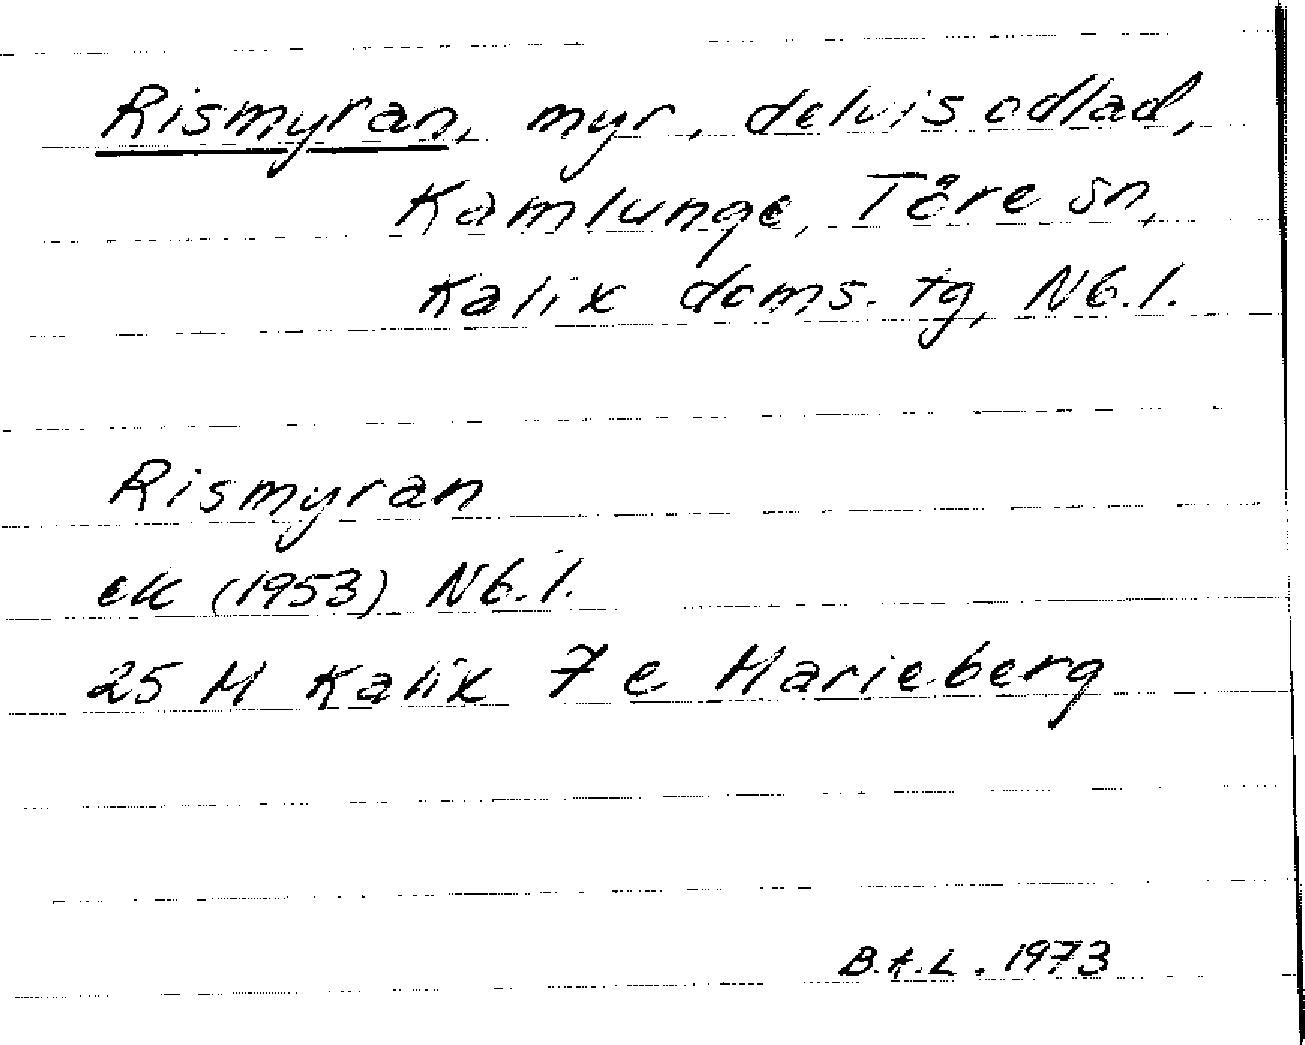 Rismyran, myr, delvis odlad,
Kamlunge, Töre sn,
Kalix doms. tg, Nb. l.
Rismyran
ek (1953) Nb. l.
25 M Kalix 7 e Marieberg
B.A.L. 1973